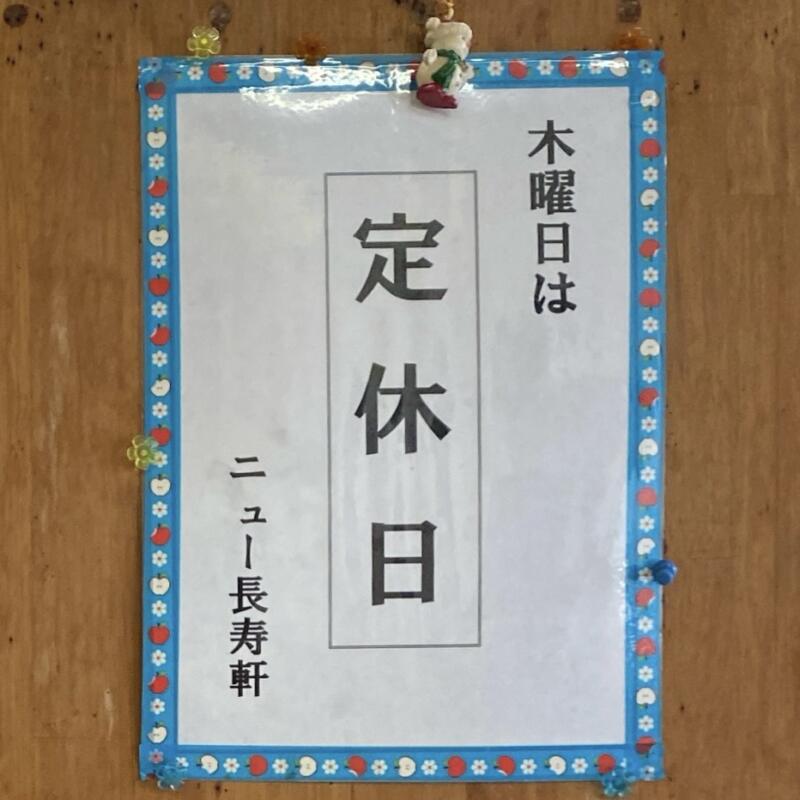 木曜日は
定休日
ニュー長寿軒